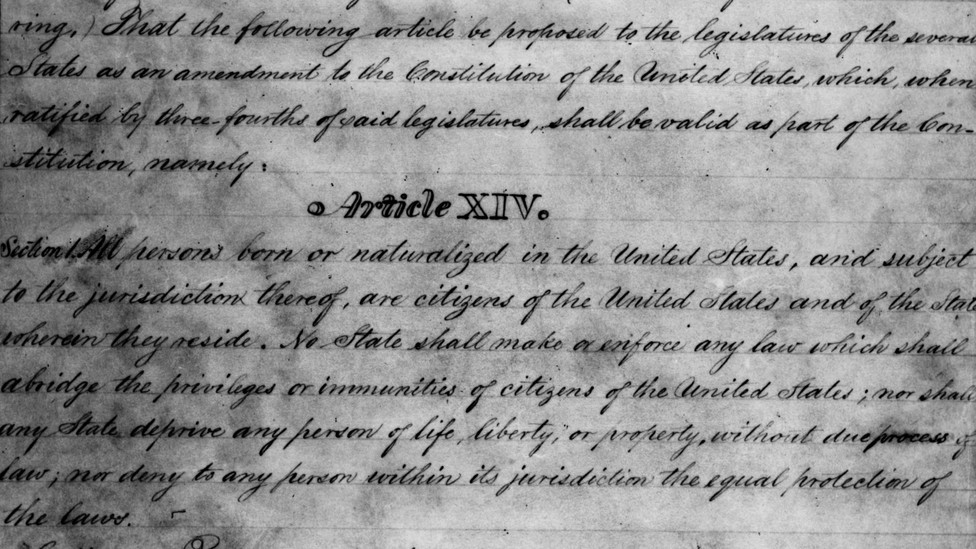 ring,) That the following article be proposed to the legislatures of the several
States as an amendment to the Constitution of the United States, which, when
ratified by three-fourths of said legislatures, shall be valid as part of the Con-
stitution, namely:
Article XIV.
Section 1. All persons born or naturalized in the United States, and subject
to the jurisdiction thereof, are citizens of the United States and of the State
wherein they reside. No State shall make or enforce any law which shall
abridge the privileges or immunities of citizens of the United States; nor shall
any State deprive any person of life, liberty, or property, without due process of
law; nor deny to any person within its jurisdiction the equal protection of
the laws.